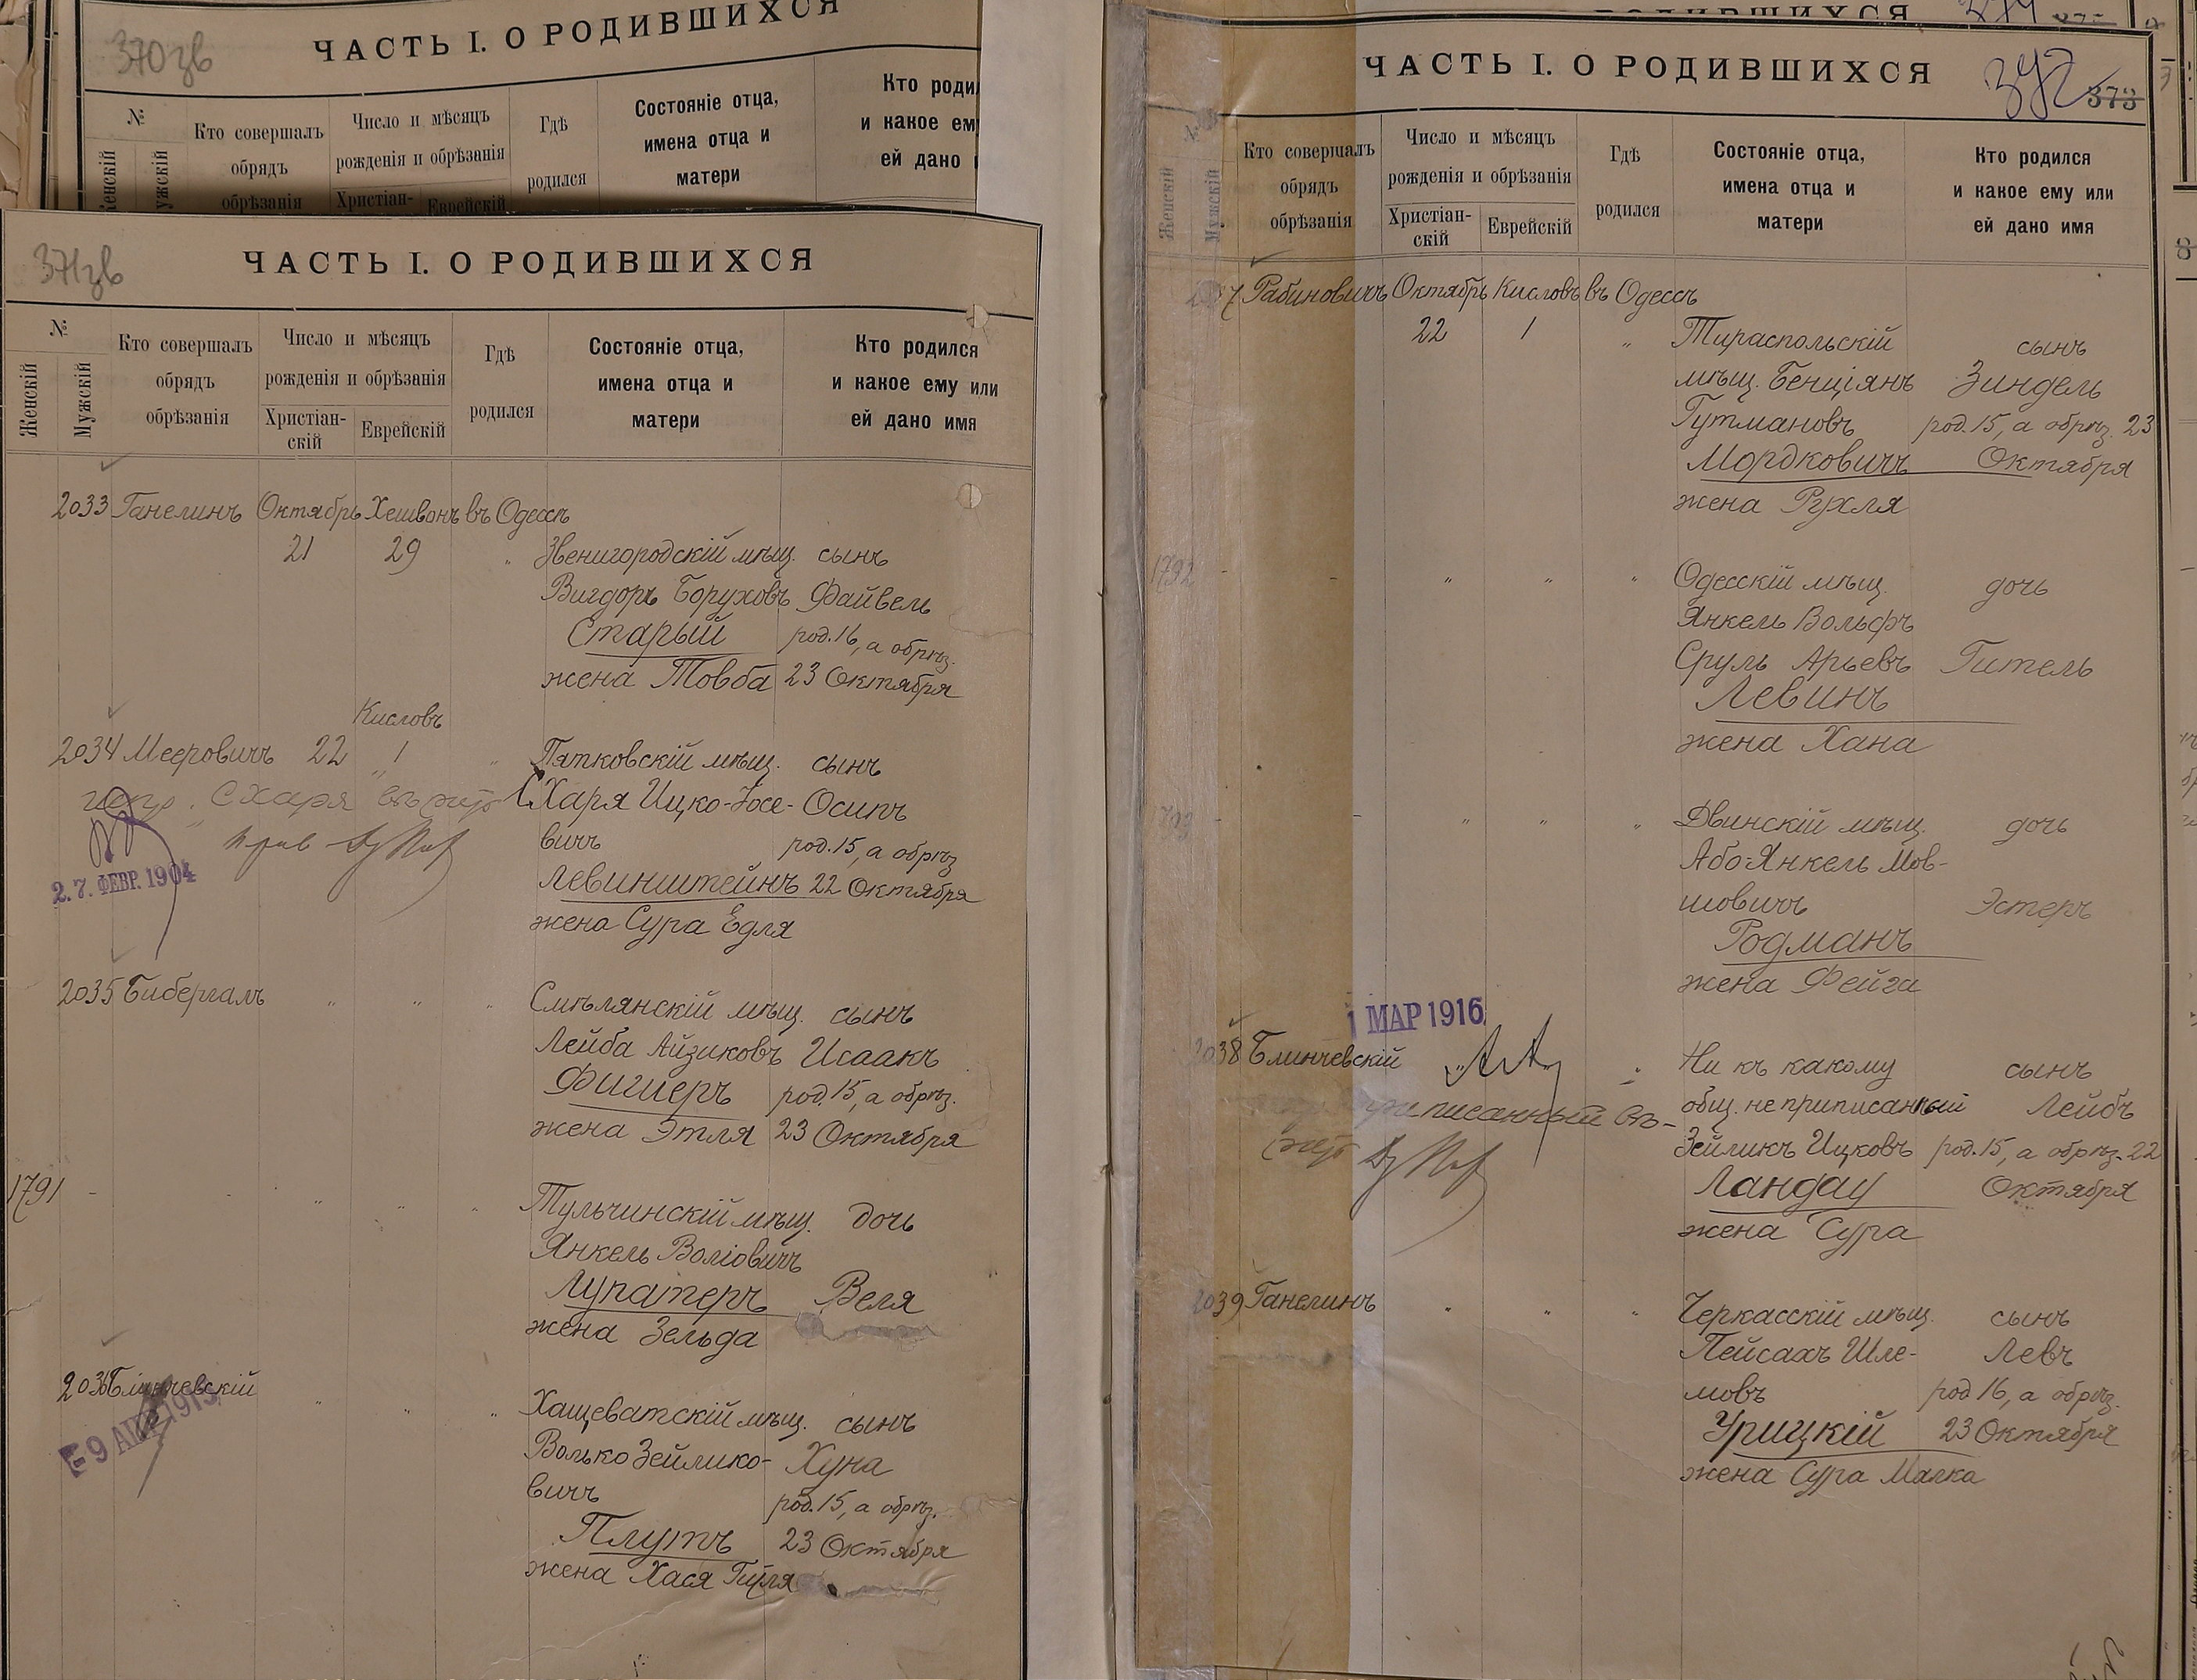 370зв
ЧАСТЬ I. О РОДИВШИХСЯ
№
Женскій
Мужскій
Кто совершалъ
обрядъ
обрѣзанія
Число и мѣсяцъ
рожденія и обрѣзанія
Христіан-
Еврейскій
Гдѣ
родился
Состояніе отца,
имена отца и
матери
Кто роди
и какое ем
ей дано
371зв
ЧАСТЬ I. О РОДИВШИХСЯ
№
Женскій
Мужскій
Кто совершалъ
обрядъ
обрѣзанія
Число и мѣсяцъ
рожденія и обрѣзанія
Христіан-
скій
Еврейскій
Гдѣ
родился
Состояніе отца,
имена отца и
матери
Кто родился
и какое ему или
ей дано имя
2033 Ганелинъ Октябрь Хешвонъ въ Одессѣ
21 29 " Звенигородскій мѣщ. сынъ
Вигдоръ Боруховъ Файвель
Старый род. 16, а обрѣз.
жена Товба 23 Октября
Кисловъ
2034 Мееровичъ 22 1 " Пятковскій мѣщ. сынъ
Схаря Ицко-Іосе- Осипъ
вичъ род. 15, а обрѣз
Левинштейнъ 22 Октября
жена Сура Едля
Схаря
2.7. ФЕВР. 1904
2035 Бибергалъ " " " Смѣлянскій мѣщ. сынъ
Лейба Айзиковъ Исаакъ
Фишеръ род. 15, а обрѣз.
жена Этля 23 Октября
1791 - - " " " Тульчинскій мѣщ. дочь
Янкель Воліовичъ
Лупатеръ Веля
жена Зельда
2036 Блинчевскій " " " Хащеватскій мѣщ. сынъ
Волько Зейлико- Хуна
вичъ род. 15, а обрѣз.
Плутъ 23 Октября
жена Хася Гитля
ЧАСТЬ I. О РОДИВШИХСЯ
372
373
Женскій
Мужскій
Кто совершалъ
обрядъ
обрѣзанія
Число и мѣсяцъ
рожденія и обрѣзанія
Христіан-
скій
Еврейскій
Гдѣ
родился
Состояніе отца,
имена отца и
матери
Кто родился
и какое ему или
ей дано имя
2037 Рабиновичъ Октябрь Кисловъ въ Одессѣ
22 1 " Тираспольскій сынъ
мѣщ. Бенціянъ Зиндель
Гутмановъ род. 15, а обрѣз. 23
Мордковичъ Октября
жена Рухля
1792 - - " " " Одесскій мѣщ. дочь
Янкель Вольфъ
Сруль Арьевъ Гитель
Левинъ
жена Хана
- - " " " Двинскій мѣщ. дочь
Або-Янкель Мов-
шовичъ Эстеръ
Родманъ
жена Фейга
1 МАР 1916
2038 Блинчевскій " Ни къ какому сынъ
общ. не приписанный Лейбъ
Зейликъ Ицковъ род. 15, а обрѣз. 22
Ландау Октября
жена Сура
2039 Ганелинъ " " " Черкасскій мѣщ. сынъ
Пейсахъ Шле- Левъ
мовъ род 16, а обрѣз.
Урицкій 23 Октября
жена Сура Малка